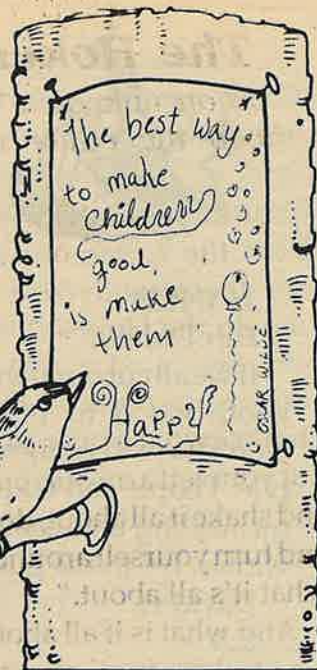 "The best way
to make
children
good,
is make
them"
Happy
OSCAR WILDE